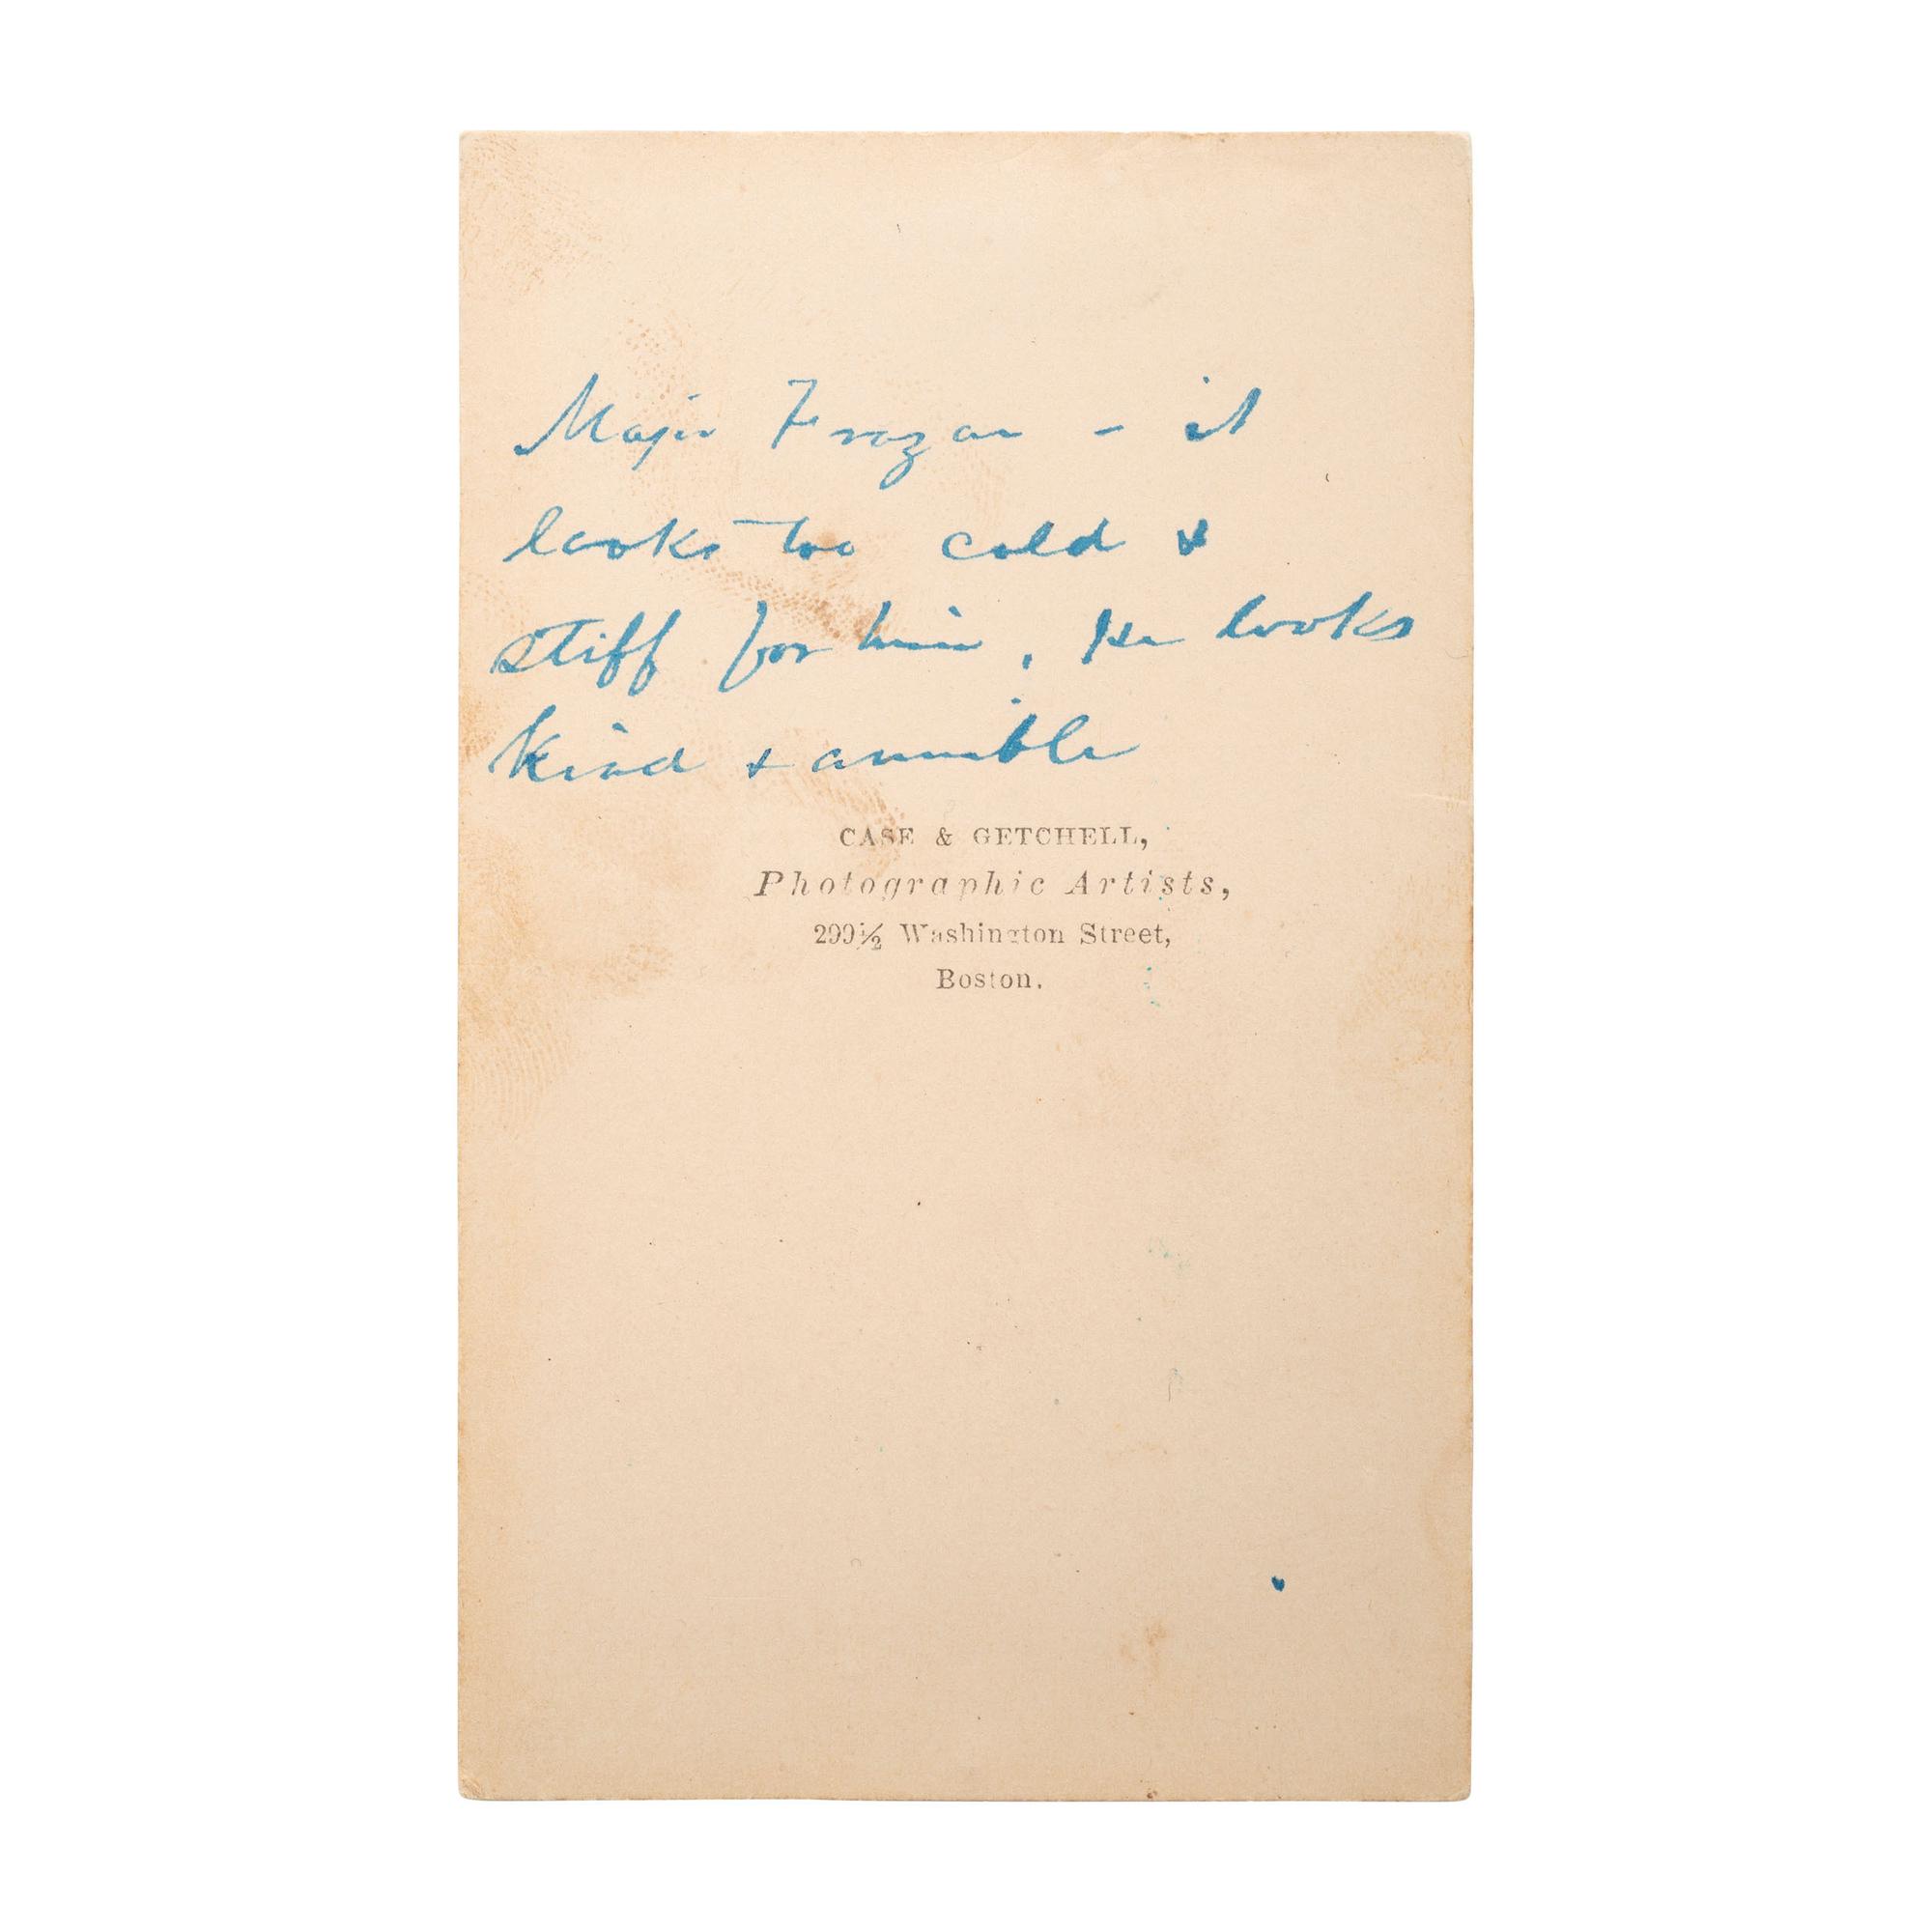 Major Frazar - it
looks too cold &
stiff for him. He looks
kind & amible
CASE & GETCHELL,
Photographic Artists,
299½ Washington Street,
Boston.